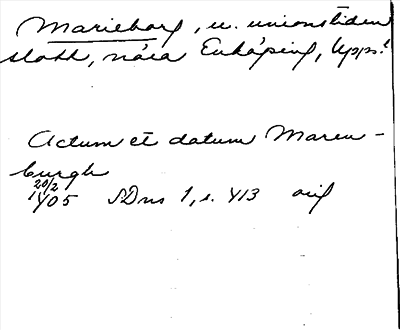 Marieborg, u. unionstiden
slott, nära Enköping, Upps.l
Actum et datum Marien-
burgh
20/2
1405 SDns 1, s. 413 orig